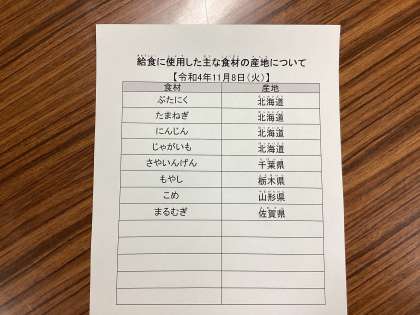 給食に使用した主な食材の産地について
【令和4年11月8日(火)】
食材 産地
ぶたにく 北海道
たまねぎ 北海道
にんじん 北海道
じゃがいも 北海道
さやいんげん 千葉県
もやし 栃木県
こめ 山形県
まるむぎ 佐賀県